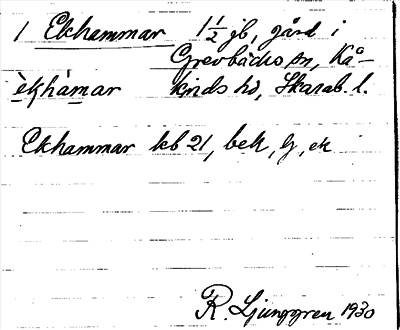 1 Ekhammar 1 1/2 jb, gård i
Grevbäcks sn, Kå-
èk̨hàmar kinds hd, Skarab. l.
Ekhammar kb 21, bek, lj, ek
R. Ljunggren 1930